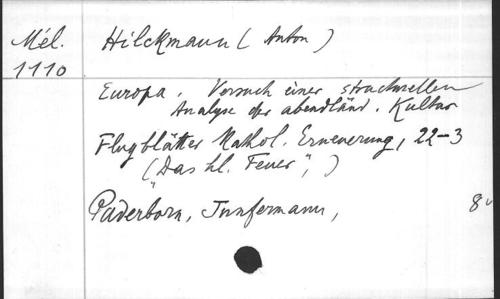 Mél. Hilckmann (Anton)
1110
Europa. Versuch einer strukturellen
Analyse der abendländ. Kultur
Flugblätter Kathol. Erneuerung, 22-3
("Das hl. Feuer",)
Paderborn, Junfermann, 8°